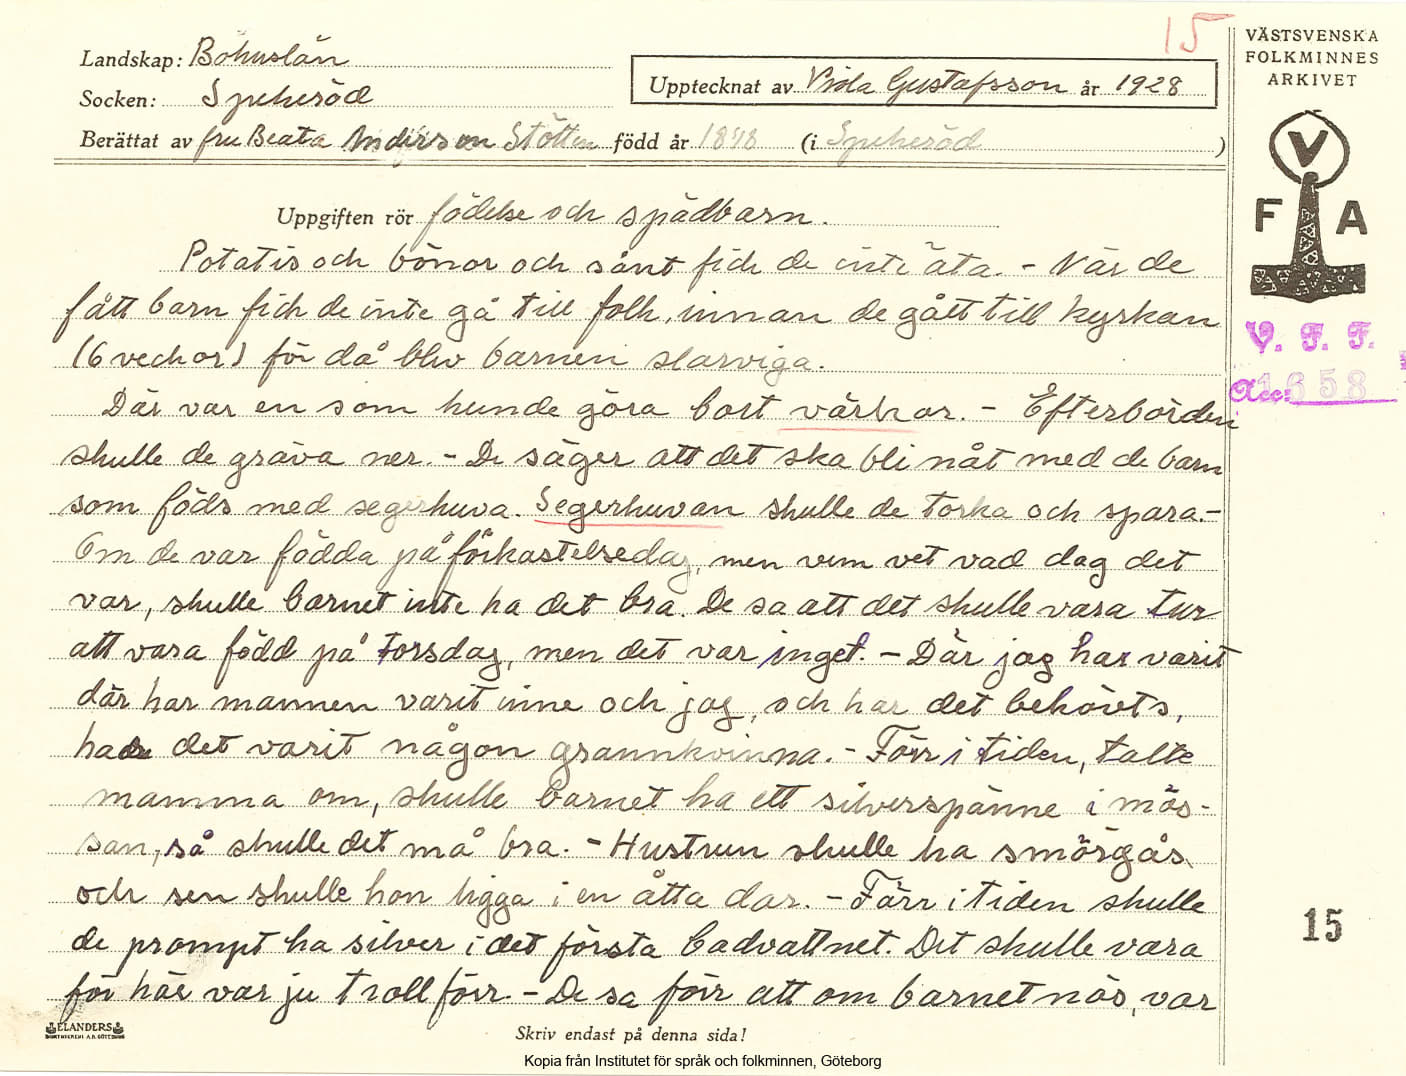 15
VÄSTSVENSKA
FOLKMINNES
ARKIVET
Landskap: Bohuslän
Socken: Spekeröd
Upptecknat av Viola Gustafsson år 1928
Berättat av fru Beata Anderson Stötten född år 1848 (i Spekeröd )
V
F A
Uppgiften rör födelse och spädbarn.
Potatis och bönor och sånt fick de inte äta. - När de
fått barn fick de inte gå till folk, innan de gått till kyrkan
(6 veckor) för då blev barnen slarviga.
Där var en som kunde göra bort värkar. - Efterbörden
skulle de gräva ner. - De säger att det ska bli nåt med de barn
som föds med segerhuva. Segerhuvan skulle de torka och spara. -
Om de var födda på förkastelsedag, men vem vet vad dag det
var, skulle barnet inte ha det bra. De sa att det skulle vara tur
att vara född på torsdag, men det var inget. - Där jag har varit
där har mannen varit inne och jag, och har det behövts,
har det varit någon grannkvinna. - Förr i tiden, talte
mamma om, skulle barnet ha ett silverspänne i mös-
san, så skulle det må bra. - Hustrun skulle ha smörgås
och sen skulle hon ligga i en åtta dar. - Förr i tiden skulle
de prompt ha silver i det första badvattnet. Det skulle vara
för här var ju troll förr. - De sa förr att om barnet nös, var
V. F. F.
Acc: 1658
15
ELANDERS
BOKTRYCKERI A.B. GÖTEBORG
Skriv endast på denna sida!
Kopia från Institutet för språk och folkminnen, Göteborg